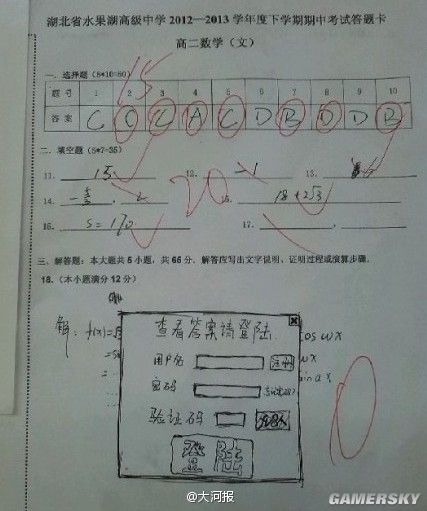 湖北省水果湖高级中学2012—2013学年度下学期期中考试答题卡
高二数学（文）
一、选择题（5*10=50） 15
题号 1 2 3 4 5 6 7 8 9 10
答案 C C A C D B D D B
二、填空题（5*7=35） 20
11. 15 12. -1 13.
14. 15. 18+2√3
16. S=170 17.
三、解答题：本大题共5小题，共65分，解答应写出文字说明、证明过程或演算步骤。
18.（本小题满分12分）
解: f(x)= cos wx
查看答案请登陆
用户名 注册
密码
验证码
登陆
@大河报
GAMERSKY